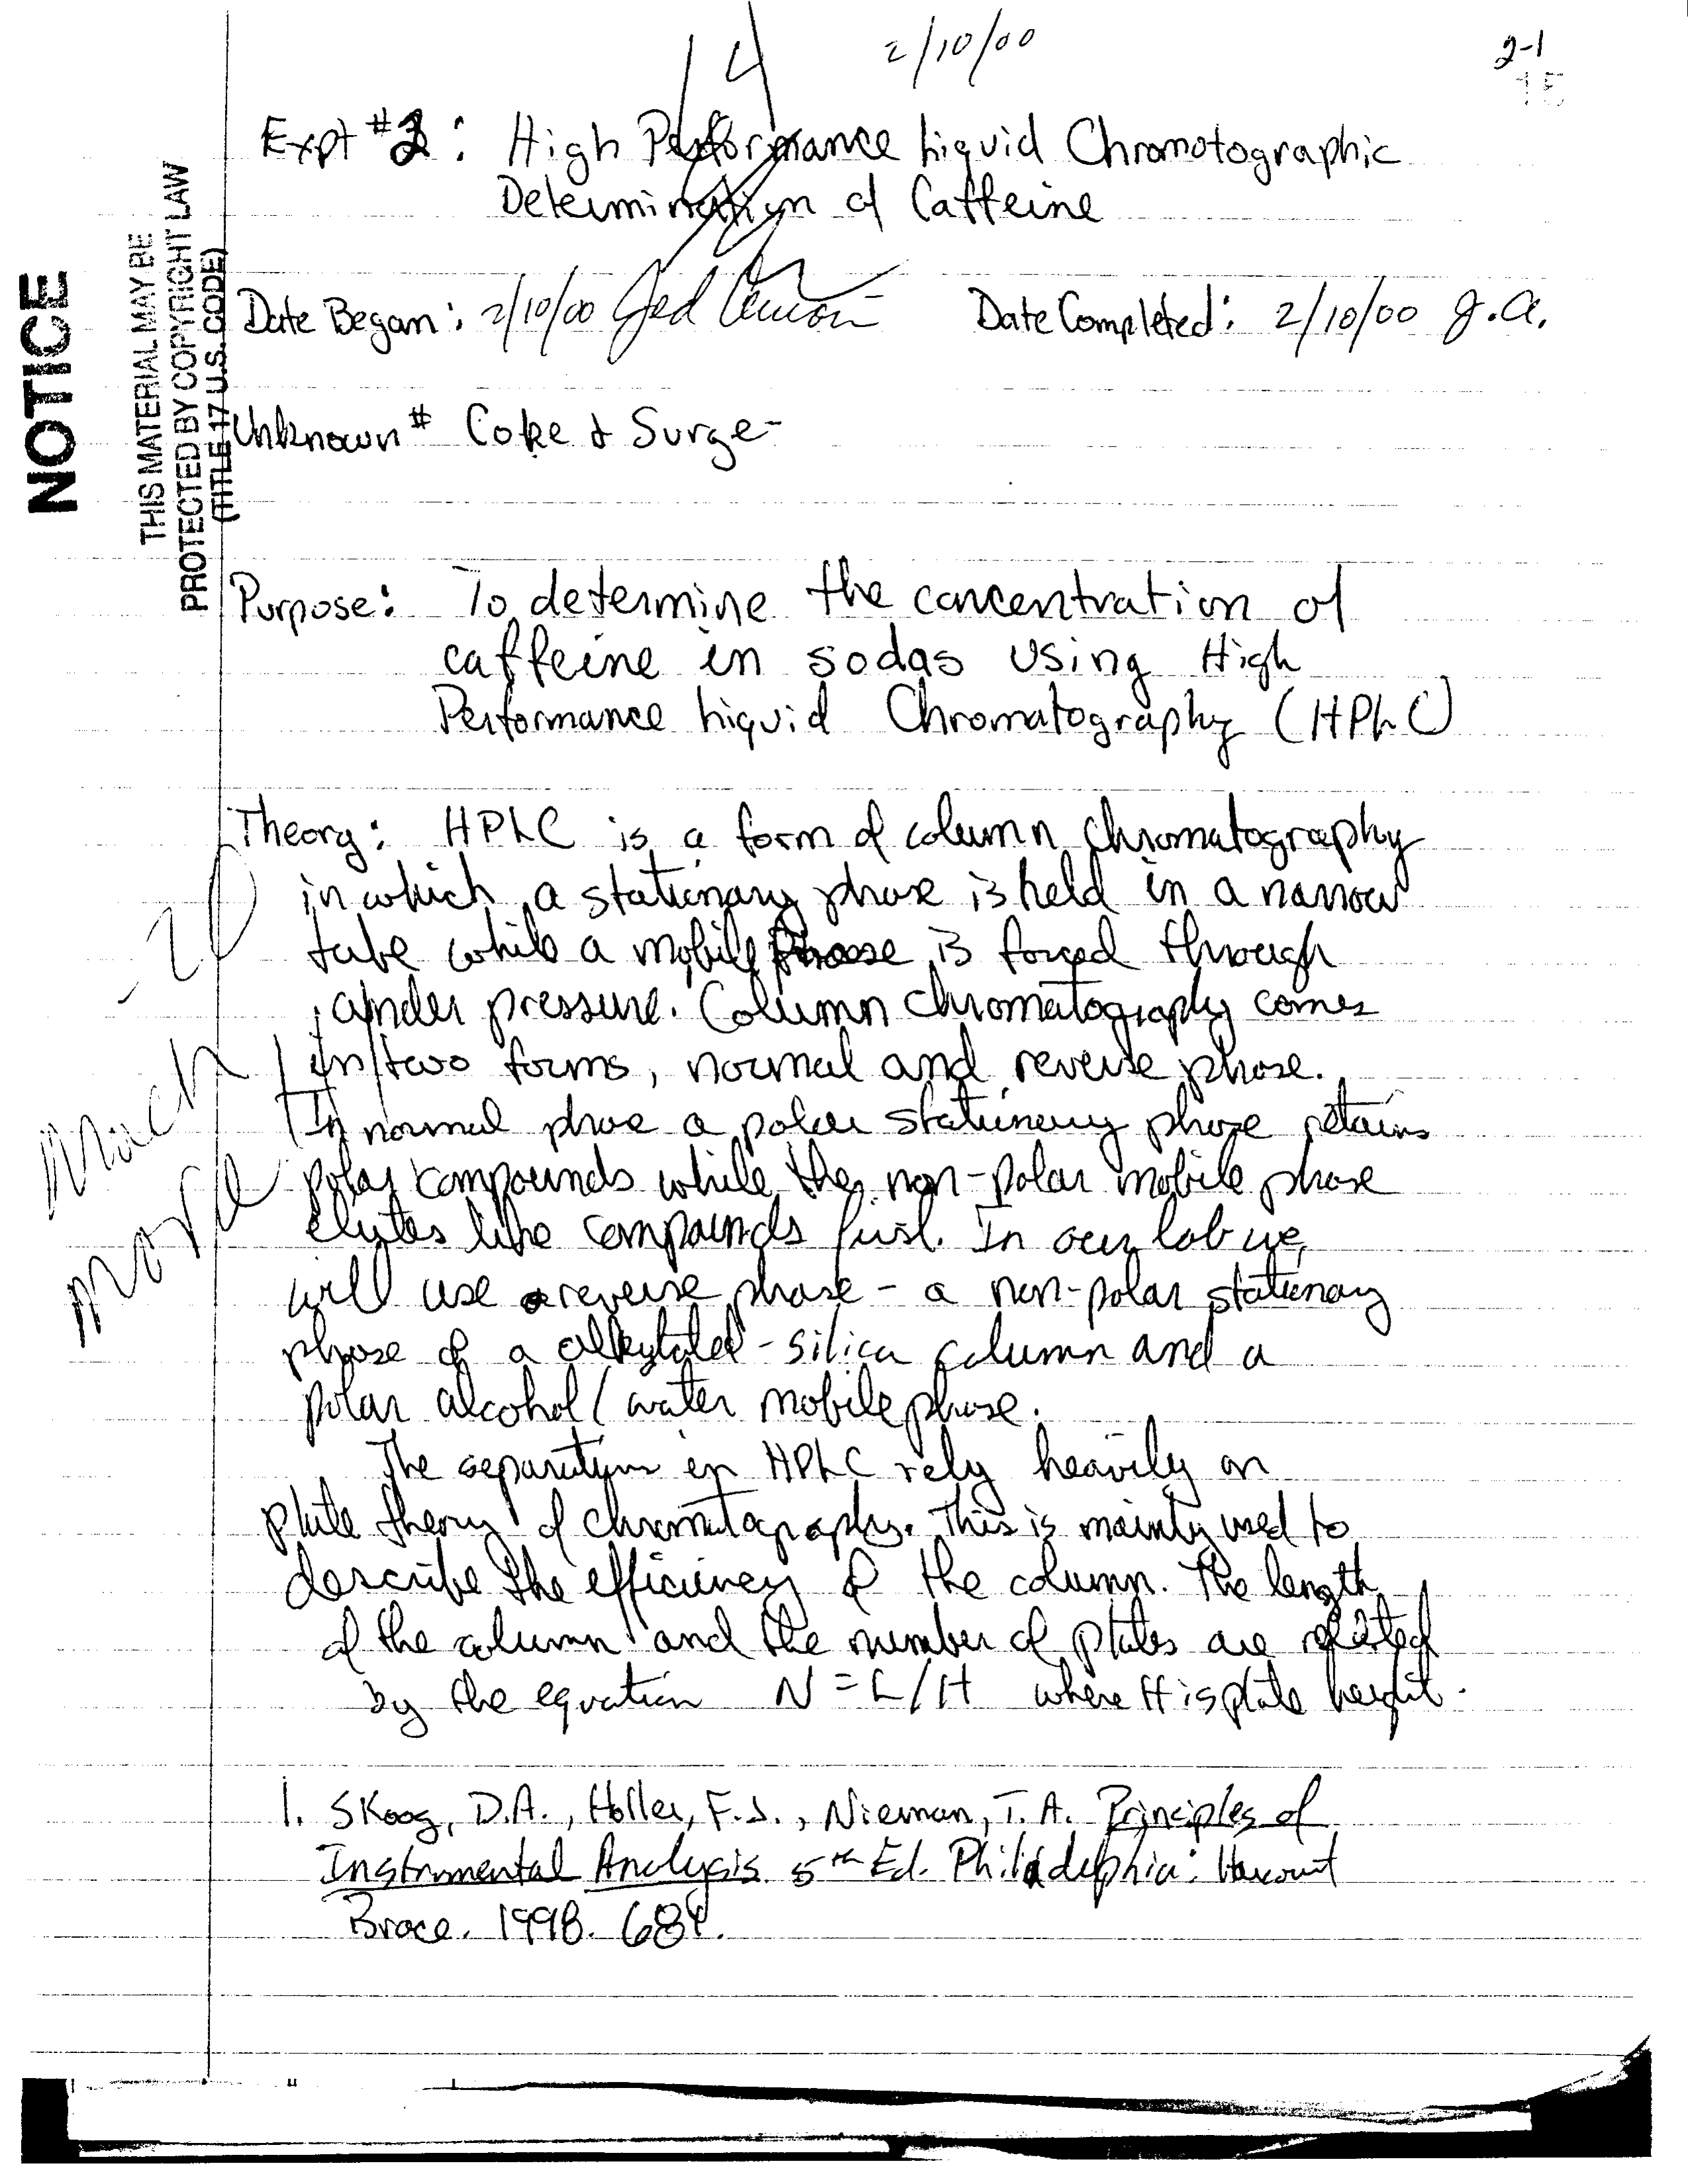 2/10/00
2-1
15
14
Expt #2: High Performance Liquid Chromotographic
Determination of Caffeine
NOTICE
THIS MATERIAL MAY BE
PROTECTED BY COPYRIGHT LAW
(TITLE 17 U.S. CODE)
Date Began: 2/10/00 Jed Date Completed: 2/10/00 J.A.
Unknown # Coke & Surge
Purpose: To determine the concentration of
caffeine in sodas using High
Performance Liquid Chromatography (HPLC)
Theory: HPLC is a form of column chromatography
in which a stationary phase is held in a narrow
tube while a mobile phase is forced through
under pressure. Column chromatography comes
in two forms, normal and reverse phase.
In normal phase a polar stationary phase retains
polar compounds while the non-polar mobile phase
elutes like compounds first. In our lab we
will use a reverse phase - a non-polar stationary
phase of a alkylated-silica column and a
polar alcohol/water mobile phase.
-2
Much
more
The separations in HPLC rely heavily on
plate theory of chromatography. This is mainly used to
describe the efficiency of the column. The length
of the column and the number of plates are related
by the equation N = L/H where H is plate height.
1. Skoog, D.A., Holler, F.J., Nieman, T.A. Principles of
Instrumental Analysis 5th Ed. Philadelphia: Harcourt
Brace. 1998. 684.